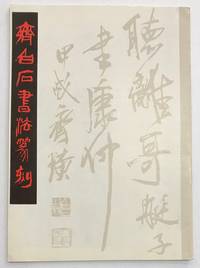 齊白石書法篆刻
聽離哥
艇子
書康仲
甲戌齊璜